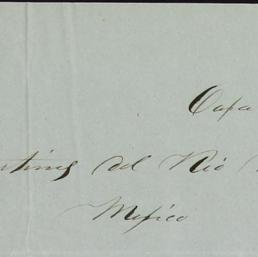 Casa
rtinez del Rio
Mexico